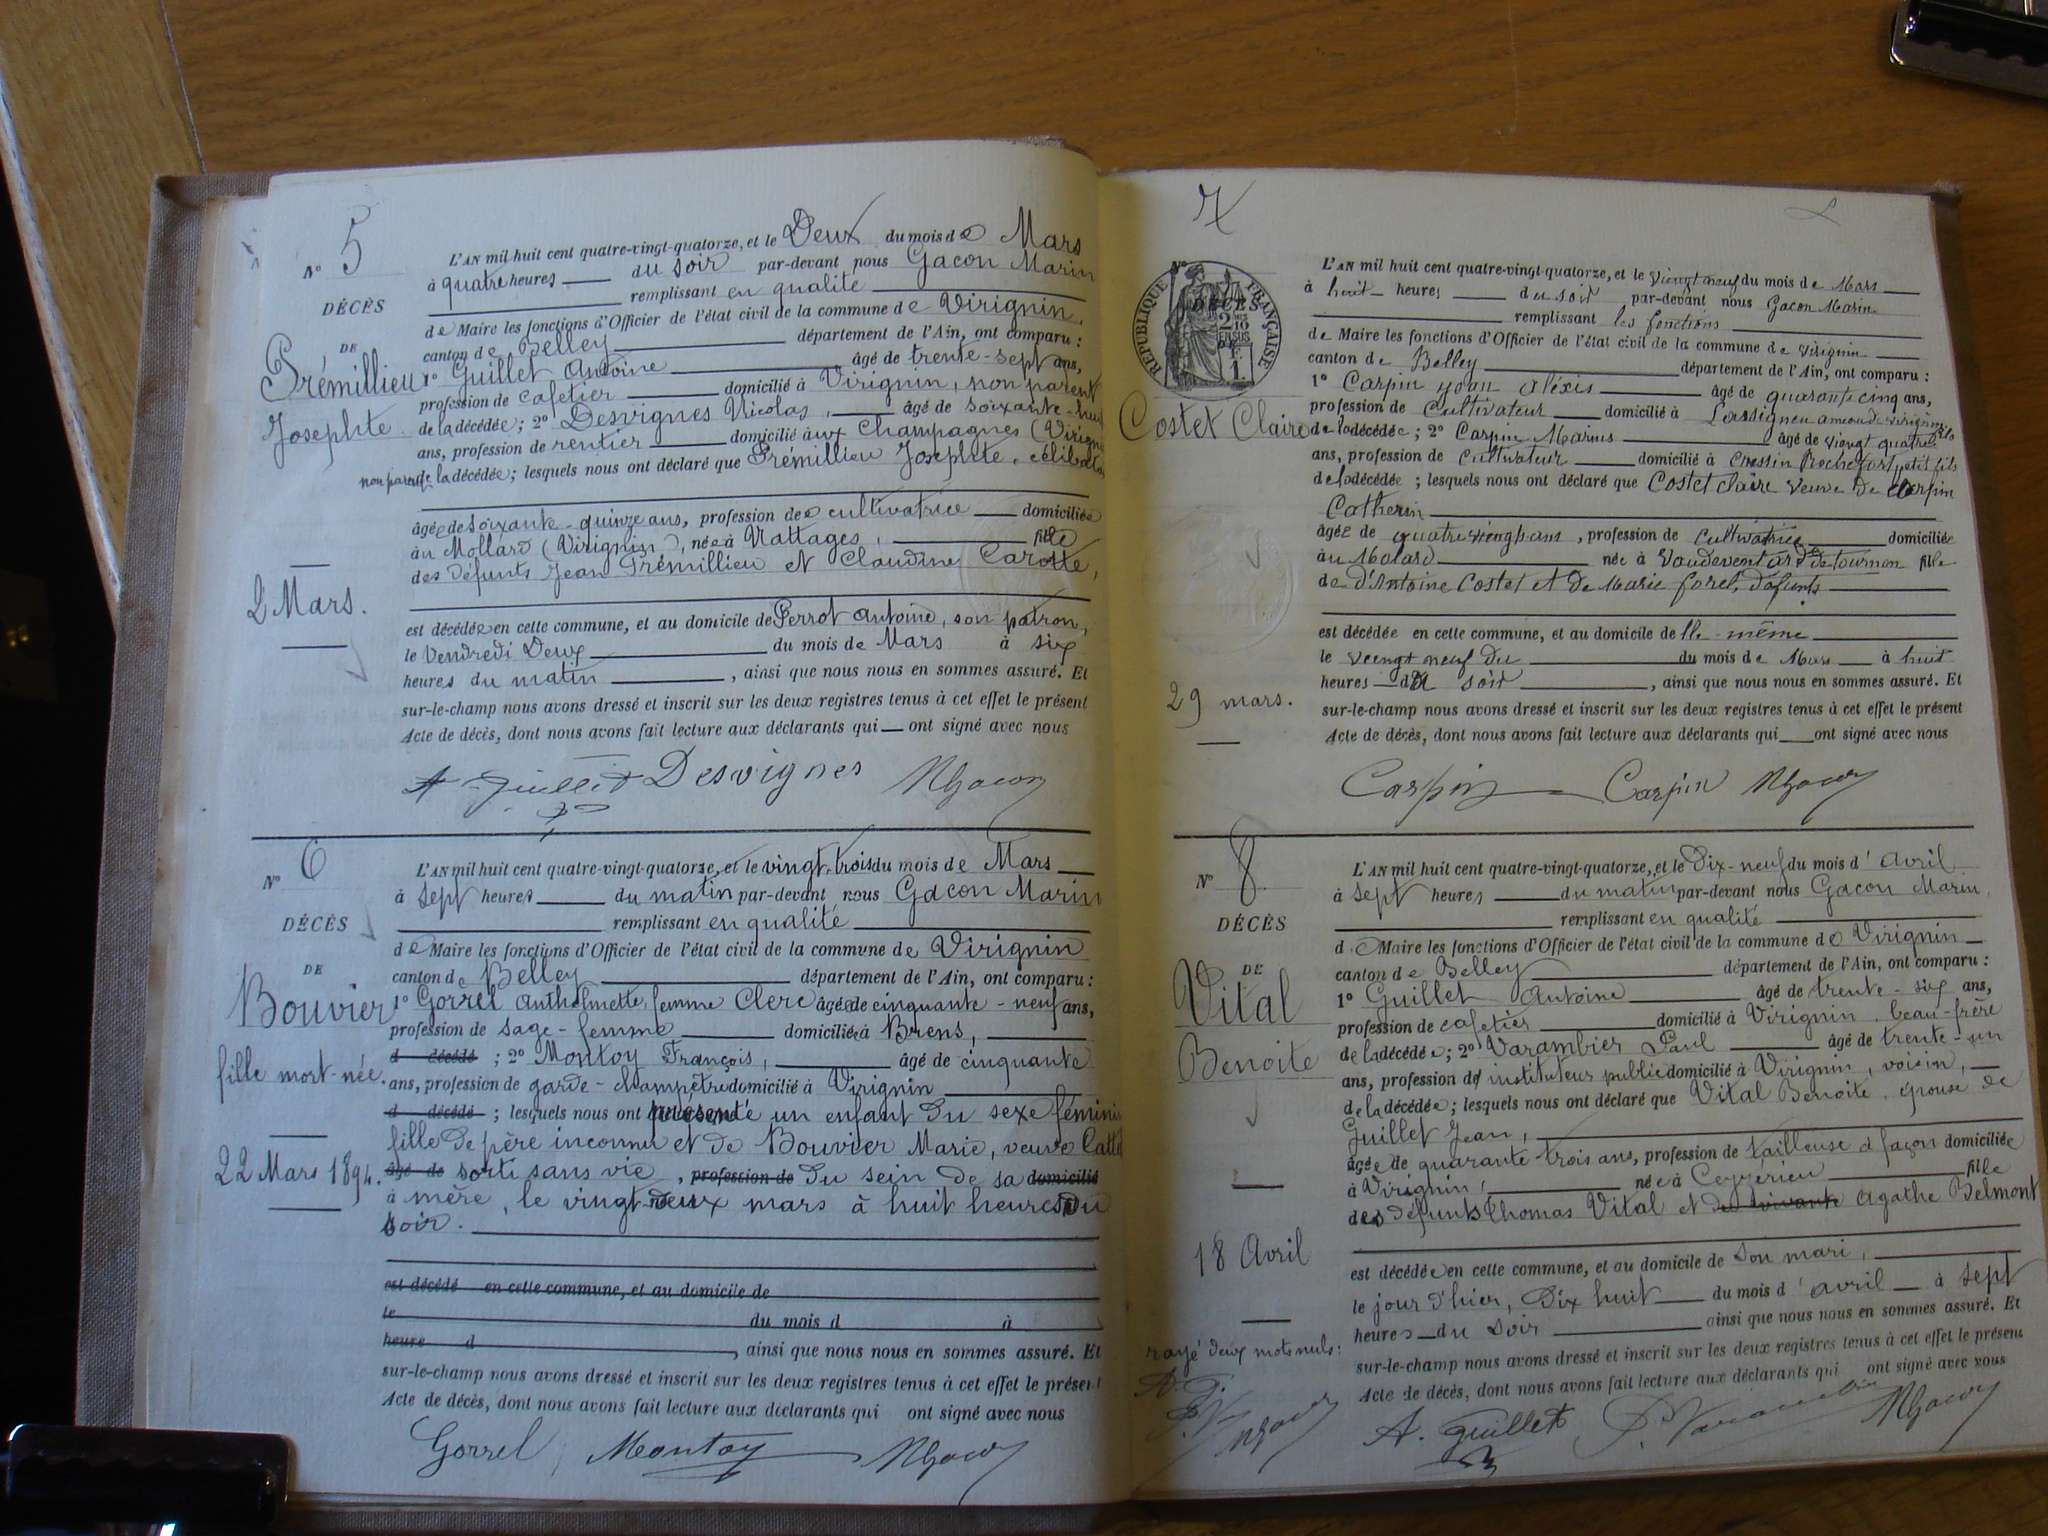 N° 5
DÉCÈS
DE
Prémillieu
Josephte
2 Mars.
L'AN mil huit cent quatre-vingt-quatorze, et le Deux du mois de Mars
à quatre heures du soir par-devant nous Gacon Marin
remplissant en qualité
de Maire les fonctions d'Officier de l'état civil de la commune de Virignin,
canton de Belley département de l'Ain, ont comparu :
1° Guillet Antoine âgé de trente-sept ans,
profession de cafetier domicilié à Virignin, non parent
de la décédée; 2° Desvignes Nicolas, âgé de soixante-huit
ans, profession de rentier domicilié aux Champagnes (Virignin
non parent de la décédée; lesquels nous ont déclaré que Prémillieu Josephte, célibataire
âgée de soixante-quinze ans, profession de cultivatrice domiciliée
au Mollard (Virignin), née à Nattages, fille
des défunts Jean Prémillieu et Claudine Carotte,
est décédée en cette commune, et au domicile de Perrot Antoine, son patron,
le Vendredi Deux du mois de Mars à six
heures du matin, ainsi que nous nous en sommes assuré. Et
sur-le-champ nous avons dressé et inscrit sur les deux registres tenus à cet effet le présent
Acte de décès, dont nous avons fait lecture aux déclarants qui ont signé avec nous
A Guillet Desvignes MGacon
N° 6
DÉCÈS
DE
Bouvier
fille mort-née.
22 Mars 1894.
L'AN mil huit cent quatre-vingt-quatorze, et le vingt-trois du mois de Mars
à sept heures du matin par-devant nous Gacon Marin
remplissant en qualité
de Maire les fonctions d'Officier de l'état civil de la commune de Virignin
canton de Belley département de l'Ain, ont comparu :
1° Gorrel Anthelmette, femme Clerc âgée de cinquante-neuf ans,
profession de sage-femme domiciliée à Brens,
d décédé ; 2° Montoy François, âgé de cinquante
ans, profession de garde-champêtre domicilié à Virignin
d décédé ; lesquels nous ont présenté un enfant du sexe féminin
fille de père inconnu et de Bouvier Marie, veuve
âgé de sorti sans vie, profession de du sein de sa domicilié
à mère, le vingt-deux mars à huit heures du
soir.
est décédé en cette commune, et au domicile de
le du mois d à
heure d , ainsi que nous nous en sommes assuré. Et
sur-le-champ nous avons dressé et inscrit sur les deux registres tenus à cet effet le présent
Acte de décès, dont nous avons fait lecture aux déclarants qui ont signé avec nous
Gorrel, Montoy MGacon
7
N°
RÉPUBLIQUE FRANÇAISE
DÉCÈS
DE
Costet Claire
29 mars.
L'AN mil huit cent quatre-vingt-quatorze, et le viengt neuf du mois de Mars
à huit heures du soir par-devant nous Gacon Marin
remplissant les fonctions
de Maire les fonctions d'Officier de l'état civil de la commune de Virignin
canton de Belley département de l'Ain, ont comparu :
1° Carpin Jean Aléxis âgé de quarante cinq ans,
profession de Cultivateur domicilié à
de la décédée; 2° Carpin Marius âgé de viengt quatre
ans, profession de Cultivateur domicilié à Cressin Rochefort petit fils
de la décédée ; lesquels nous ont déclaré que Costet Claire veuve de Carpin
Catherin
âgée de quatre viengts ans, profession de cultivatrice domiciliée
au Molard née à fille
de d'Antoine Costet et de Marie forel, défunts
est décédée en cette commune, et au domicile de lle-même
le vieengt neuf du du mois de Mars à huit
heures du soir, ainsi que nous nous en sommes assuré. Et
sur-le-champ nous avons dressé et inscrit sur les deux registres tenus à cet effet le présent
Acte de décès, dont nous avons fait lecture aux déclarants qui ont signé avec nous
Carpin Carpin MGacon
N° 8
DÉCÈS
DE
Vital
Benoite
18 Avril
rayé deux mots nuls :
MGacon
L'AN mil huit cent quatre-vingt-quatorze, et le Dix-neuf du mois d'avril
à sept heures du matin par-devant nous Gacon Marin,
remplissant en qualité
de Maire les fonctions d'Officier de l'état civil de la commune de Virignin
canton de Belley département de l'Ain, ont comparu :
1° Guillet Antoine âgé de trente-six ans,
profession de cafetier domicilié à Virignin, beau-frère
de la décédée; 2° Varambier Paul âgé de trente-un
ans, profession d'instituteur public domicilié à Virignin, voisin,
de la décédée; lesquels nous ont déclaré que Vital Benoite, épouse de
Guillet Jean,
âgée de quarante trois ans, profession de tailleuse à façon domiciliée
à Virignin, née à Ceyzérieu fille
des défunts Thomas Vital et de vivante Agathe Belmont
est décédée en cette commune, et au domicile de son mari,
le jour d'hier, dix huit du mois d'avril à sept
heures du soir ainsi que nous nous en sommes assuré. Et
sur-le-champ nous avons dressé et inscrit sur les deux registres tenus à cet effet le présent
Acte de décès, dont nous avons fait lecture aux déclarants qui ont signé avec nous
A. Guillet P. Varambier MGacon